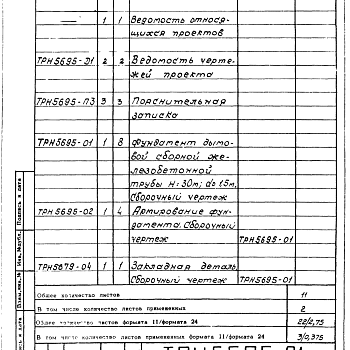 1 1 Ведомость относя-
щихся проектов
ТРН5695-Д1 2 2 Ведомость черте-
жей проекта
ТРН5695-ПЗ 3 3 Пояснительная
записка
ТРН5695-01 1 8 Фундамент дымо-
вой сборной же-
лезобетонной
трубы H=30м; d=1.5м.
Сборочный чертеж
ТРН5695-02 1 4 Армирование фун-
дамента. Сборочный
чертеж ТРН5695-01
ТРН5679-04 1 1 Закладная деталь.
Сборочный чертеж ТРН5695-01
Общее количество листов 11
В том числе количество листов примененных 2
Общее количество листов формата 11/формата 24 22/2,75
В том числе количество листов примененных формата 11/формата 24 3/0,375
Подпись и дата